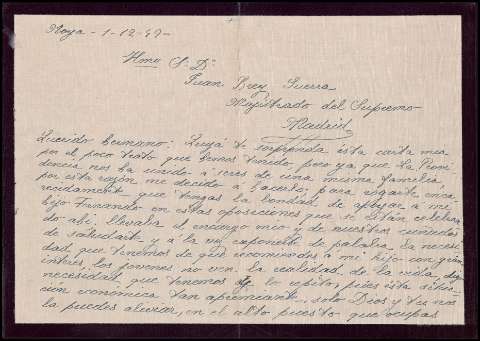 Noya - 1-12-49-
Hmo S. Dn
Juan Rey Guerra
Magistrado del Supremo
Madrid
Querido hermano: Quizá te sorprenda esta carta mia
por el poco trato que hemos tenido pero ya que la Provi
dencia nos ha unido a seres de una misma familia,
por esta razón me decido a hacerlo, para rogarte enca
recidamente que tengas la bondad de apoyar a mi
hijo Fernando en estas oposiciones que se están celebran
do ahi, llevaba el encargo mio y de nuestros cuñados
de saludarte y a la vez exponerte de palabra la necesi
dad, que tenemos de que recomiendes a mi hijo con gran
interés, los jovenes no ven la realidad de la vida,
necesidad, que tenemos lo repito, pues esta situa
ción económica tan apremiante, solo Dios y tu nos
la puedes aliviar, en el alto puesto que ocupas